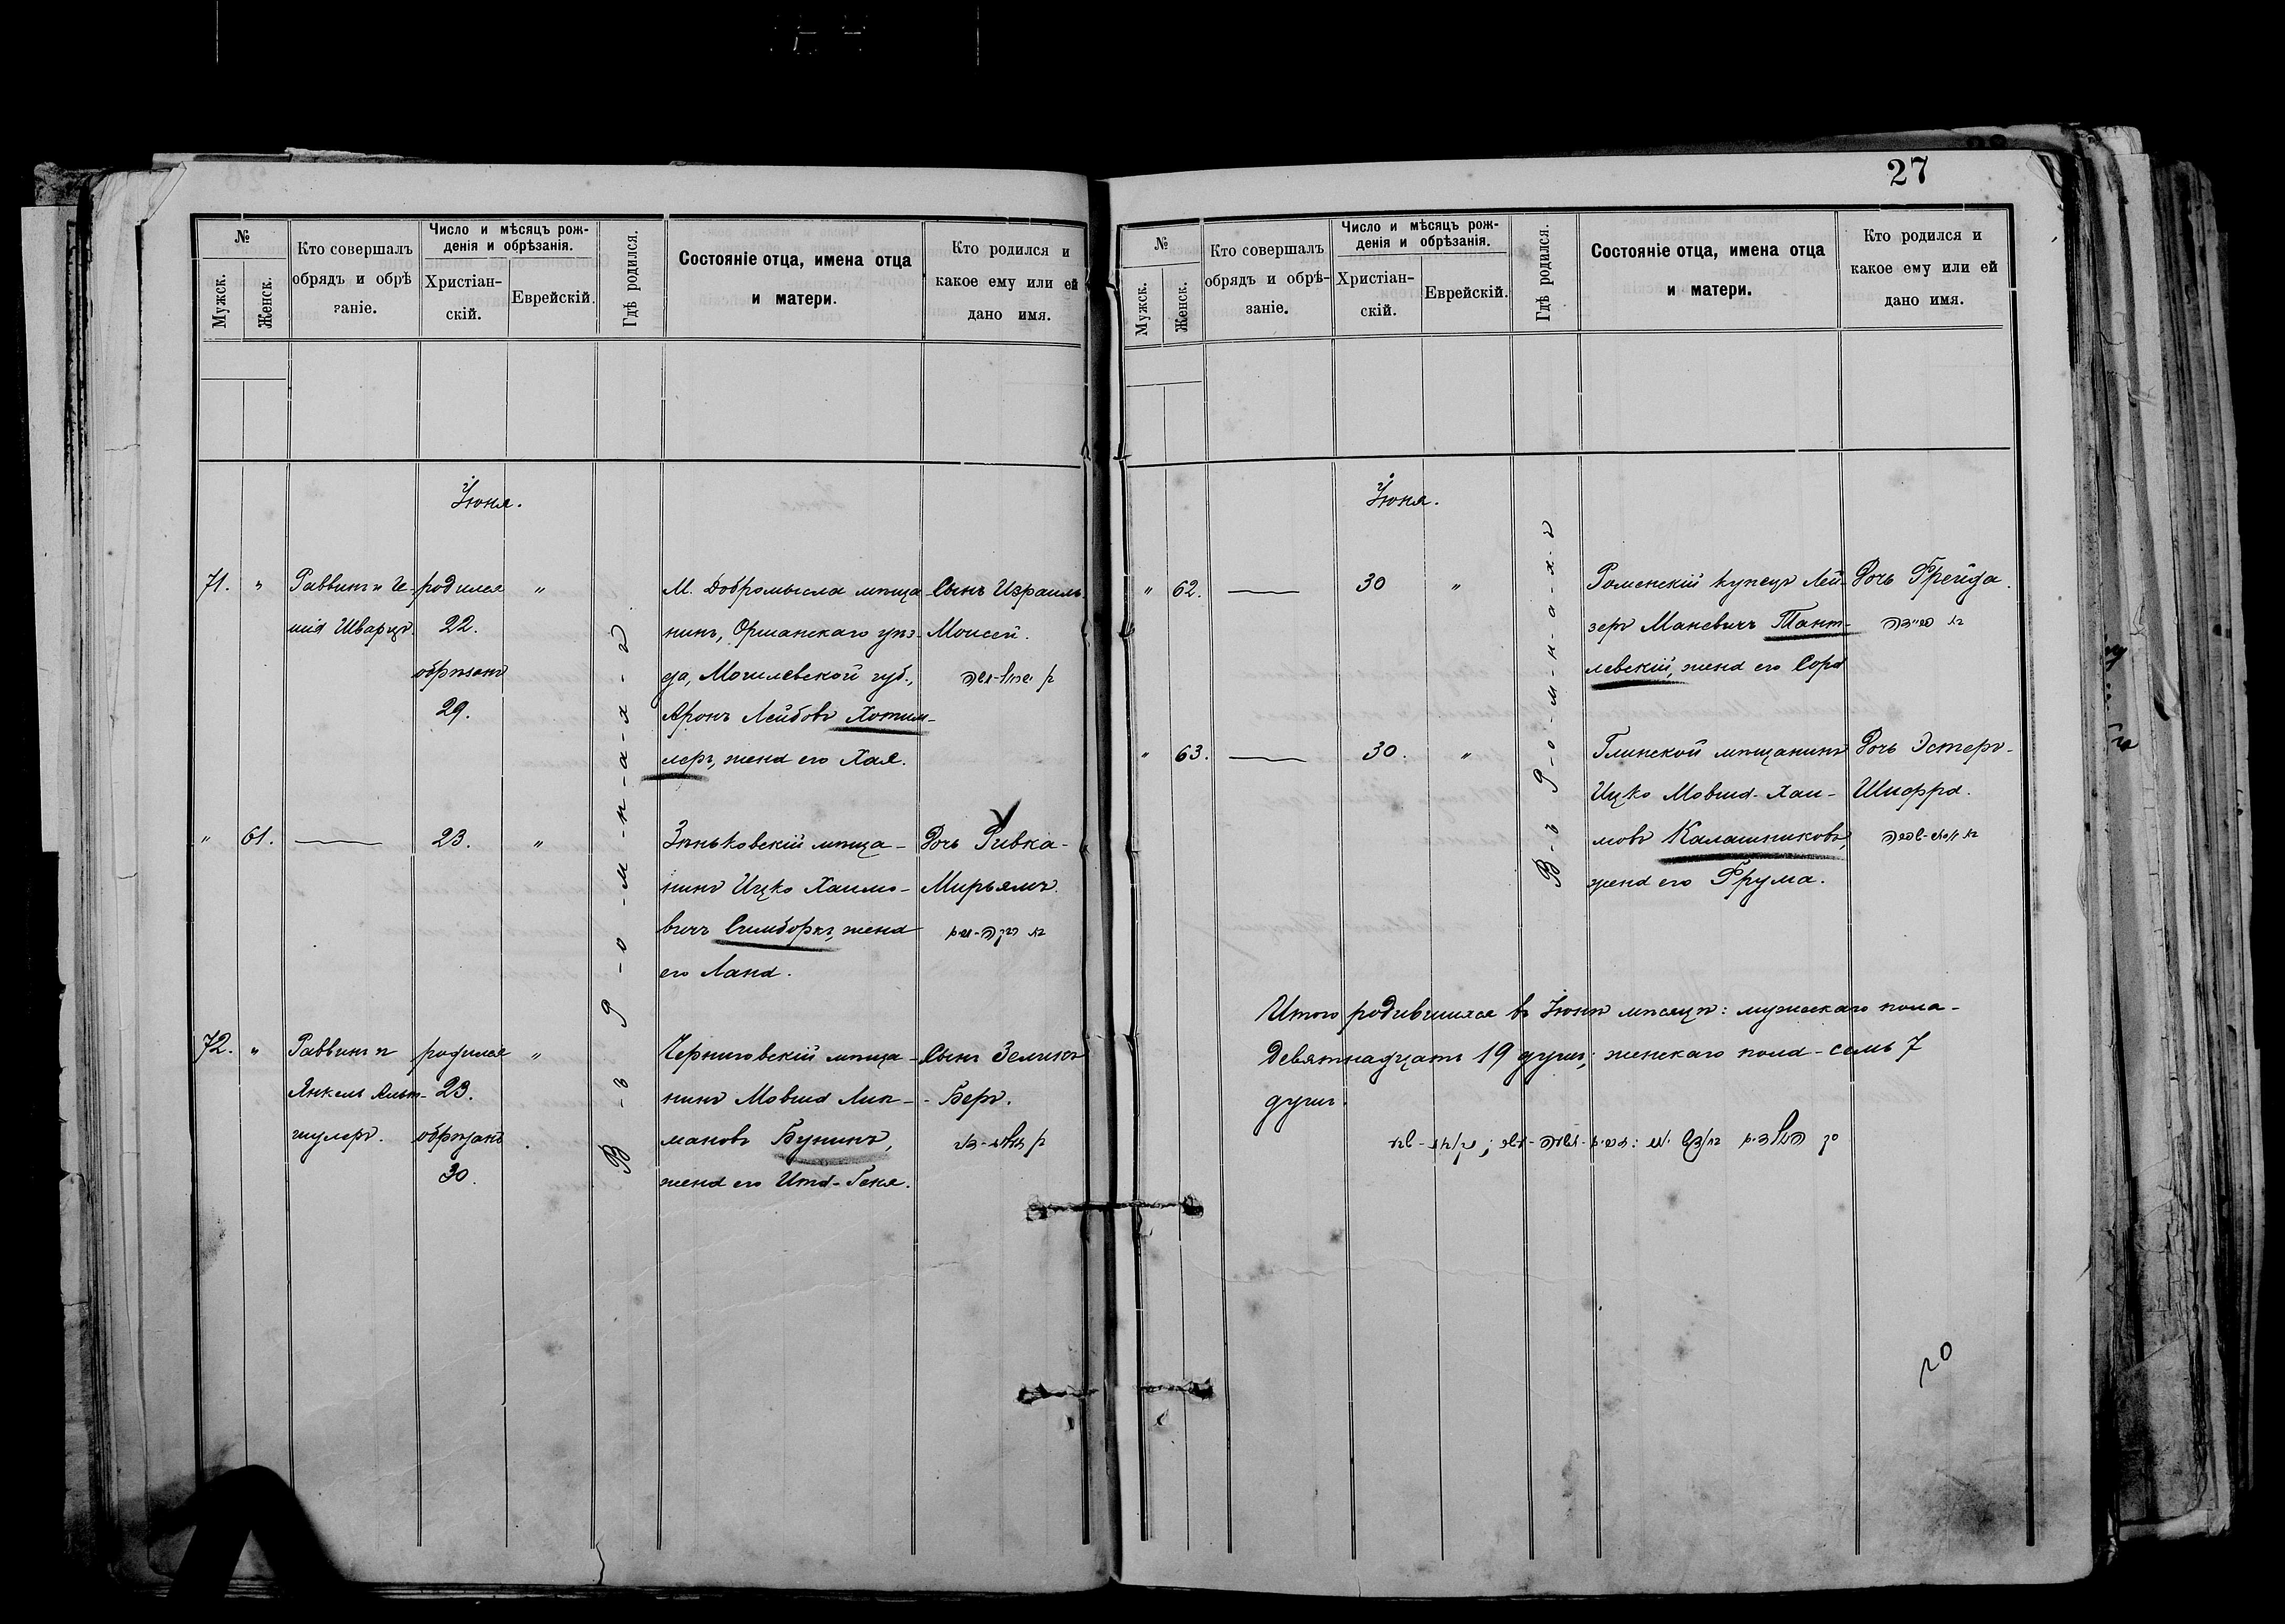 27
№
Мужск.
Женск.
Кто совершалъ
обрядъ и обрѣ
заніе.
Число и мѣсяцъ рож-
денія и обрѣзанія.
Христіан-
скій.
Еврейскій.
Гдѣ родился.
Состояніе отца, имена отца
и матери.
Кто родился и
какое ему или ей
дано имя.
Іюня.
71. "
Раввинъ и
Шварцъ.
родился
22.
обрѣзанъ
29.
"
М. Добромысла мѣща-
нинъ, Оршанскаго уѣз-
да, Могилевской губ.,
Аронъ Лейбовъ Хотим-
леръ, жена его Хая.
Сынъ Израиль
Моисей.
" 61.
23.
"
Зѣньковскій мѣща-
нинъ Ицко Хаимо-
вичъ Симборкъ, жена
его Лана.
Дочь Ривка-
Мирьямъ.
72. "
Раввинъ и
Янкель Альт-
шулеръ.
родился
23.
обрѣзанъ
30.
"
Черниговскій мѣща-
нинъ Мовша Лип-
мановъ Бунинъ,
жена его Ита-Геня.
Сынъ Зеликъ
- Беръ.
В-ъ Р-о-м-н-а-х-ъ
№
Мужск.
Женск.
Кто совершалъ
обрядъ и обрѣ-
заніе.
Число и мѣсяцъ рож-
денія и обрѣзанія.
Христіан-
скій.
Еврейскій.
Гдѣ родился.
Состояніе отца, имена отца
и матери.
Кто родился и
какое ему или ей
дано имя.
Іюня.
" 62.
30
"
Роменскій купецъ Лей-
зеръ Маневичъ Тант-
левскій, жена его Сора
Дочь Фрейда.
" 63.
30.
"
Глинской мѣщанинъ
Ицко Мовша-Хаи-
мовъ Калашниковъ,
жена его Фрума.
Дочь Эстеръ-
Шифра.
В-ъ Р-о-м-н-а-х-ъ
Итого родившихся въ Іюнѣ мѣсяцѣ: мужескаго пола-
девятнадцать 19 душъ; женскаго пола - семь 7
душъ.